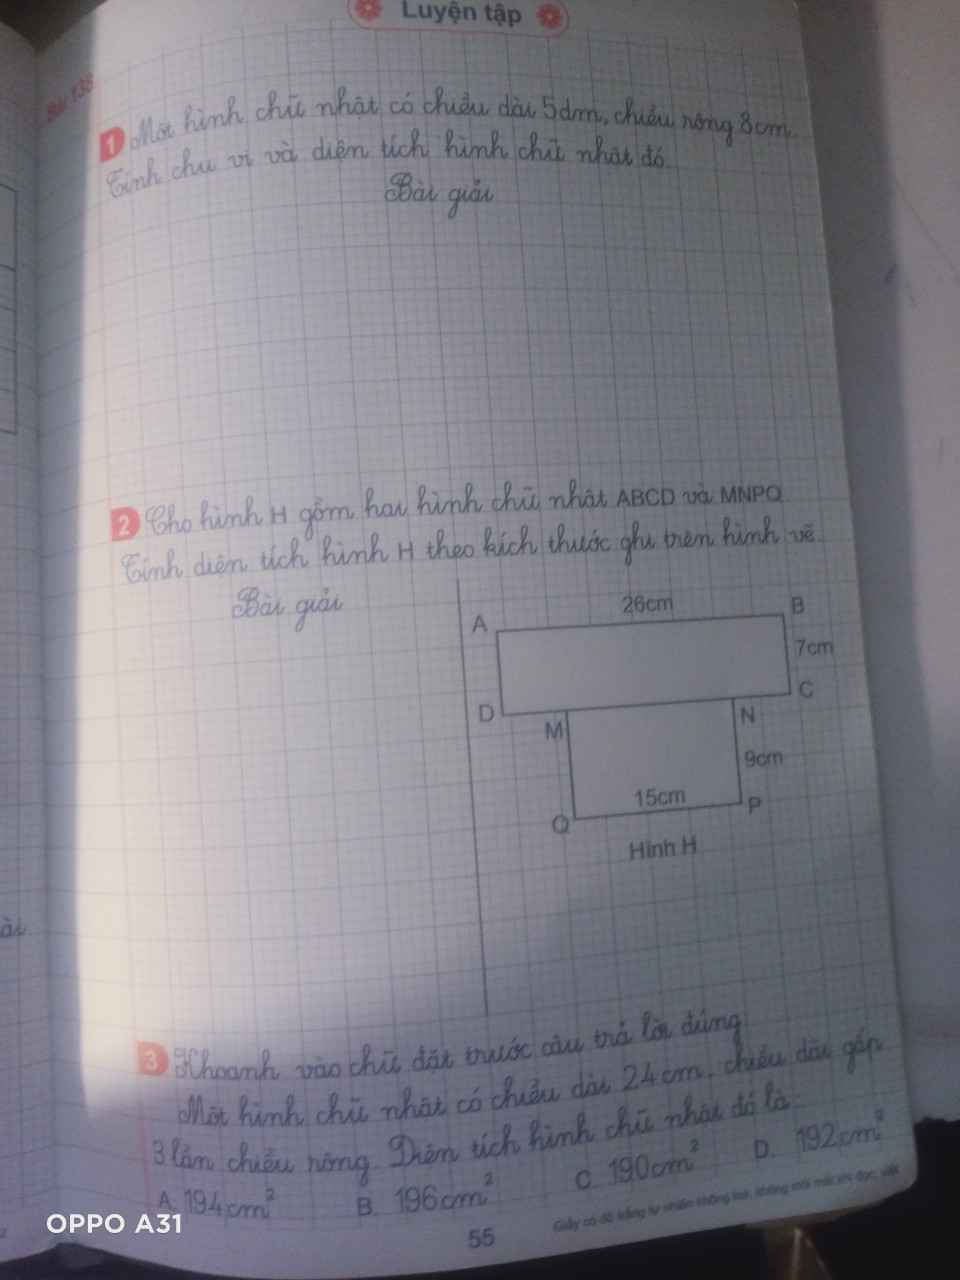 Luyện tập
Bài 138
1 Một hình chữ nhật có chiều dài 5dm, chiều rộng 8cm.
Tính chu vi và diện tích hình chữ nhật đó.
Bài giải
2 Cho hình H gồm hai hình chữ nhật ABCD và MNPQ.
Tính diện tích hình H theo kích thước ghi trên hình vẽ.
Bài giải
26cm
A
B
7cm
D
C
M
N
9cm
15cm
Q
P
Hình H
ài
3 Khoanh vào chữ đặt trước câu trả lời đúng
Một hình chữ nhật có chiều dài 24cm, chiều dài gấp
3 lần chiều rộng. Diện tích hình chữ nhật đó là:
A. 194cm² B. 196cm² C. 190cm² D. 192cm²
55
Giấy có độ trắng tự nhiên không hại mắt khi đọc, viết
OPPO A31